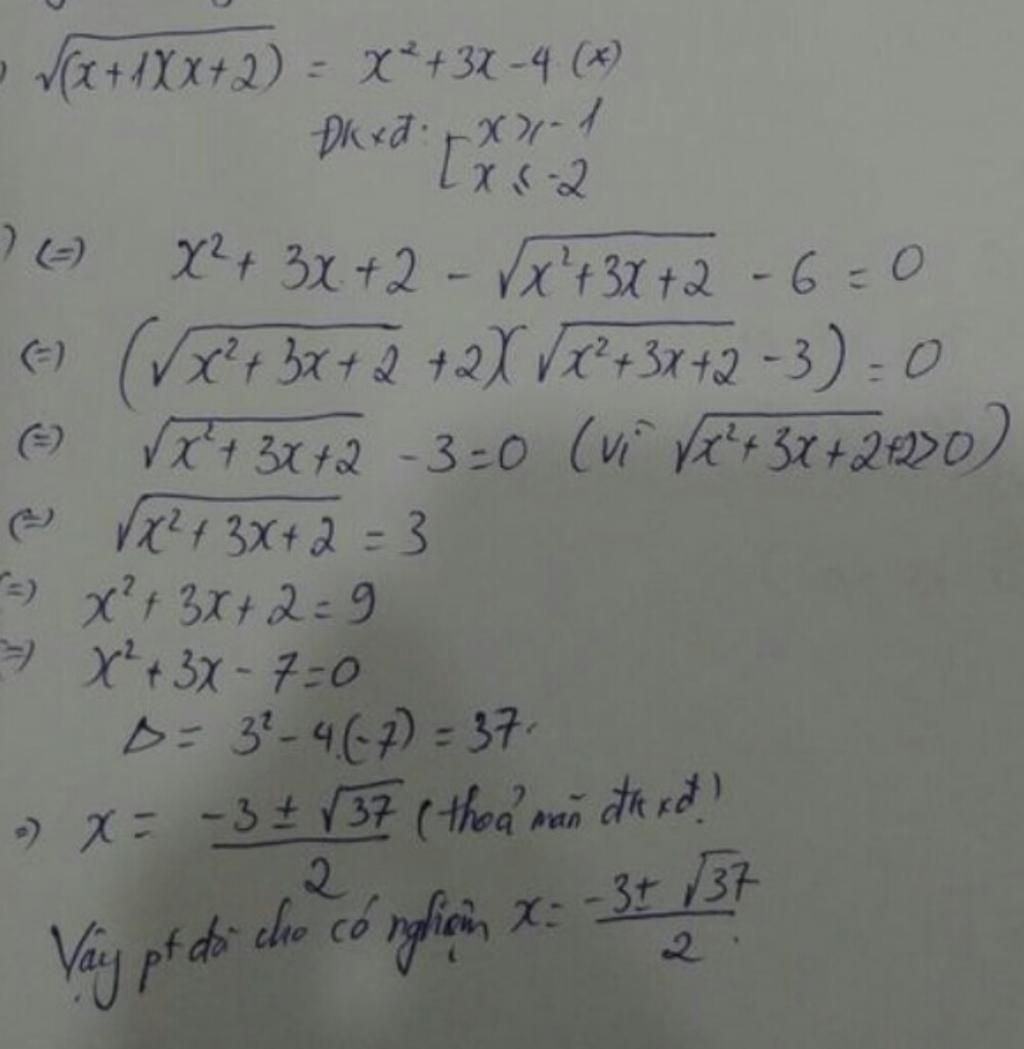 ) √(x+1)(x+2) = x² + 3x - 4 (*)
Đkxđ: [ x ≥ -1
x ≤ -2
) (=) x² + 3x + 2 - √x²+3x+2 - 6 = 0
(=) (√x²+3x+2 + 2)(√x²+3x+2 - 3) = 0
(=) √x²+3x+2 - 3 = 0 (vì √x²+3x+2+2>0)
(=) √x²+3x+2 = 3
(=) x² + 3x + 2 = 9
(=) x² + 3x - 7 = 0
Δ = 3² - 4.(-7) = 37.
=) x = (-3 ± √37)/2 (thoả mãn đkxđ)
Vậy pt đã cho có nghiệm x = (-3 ± √37)/2.